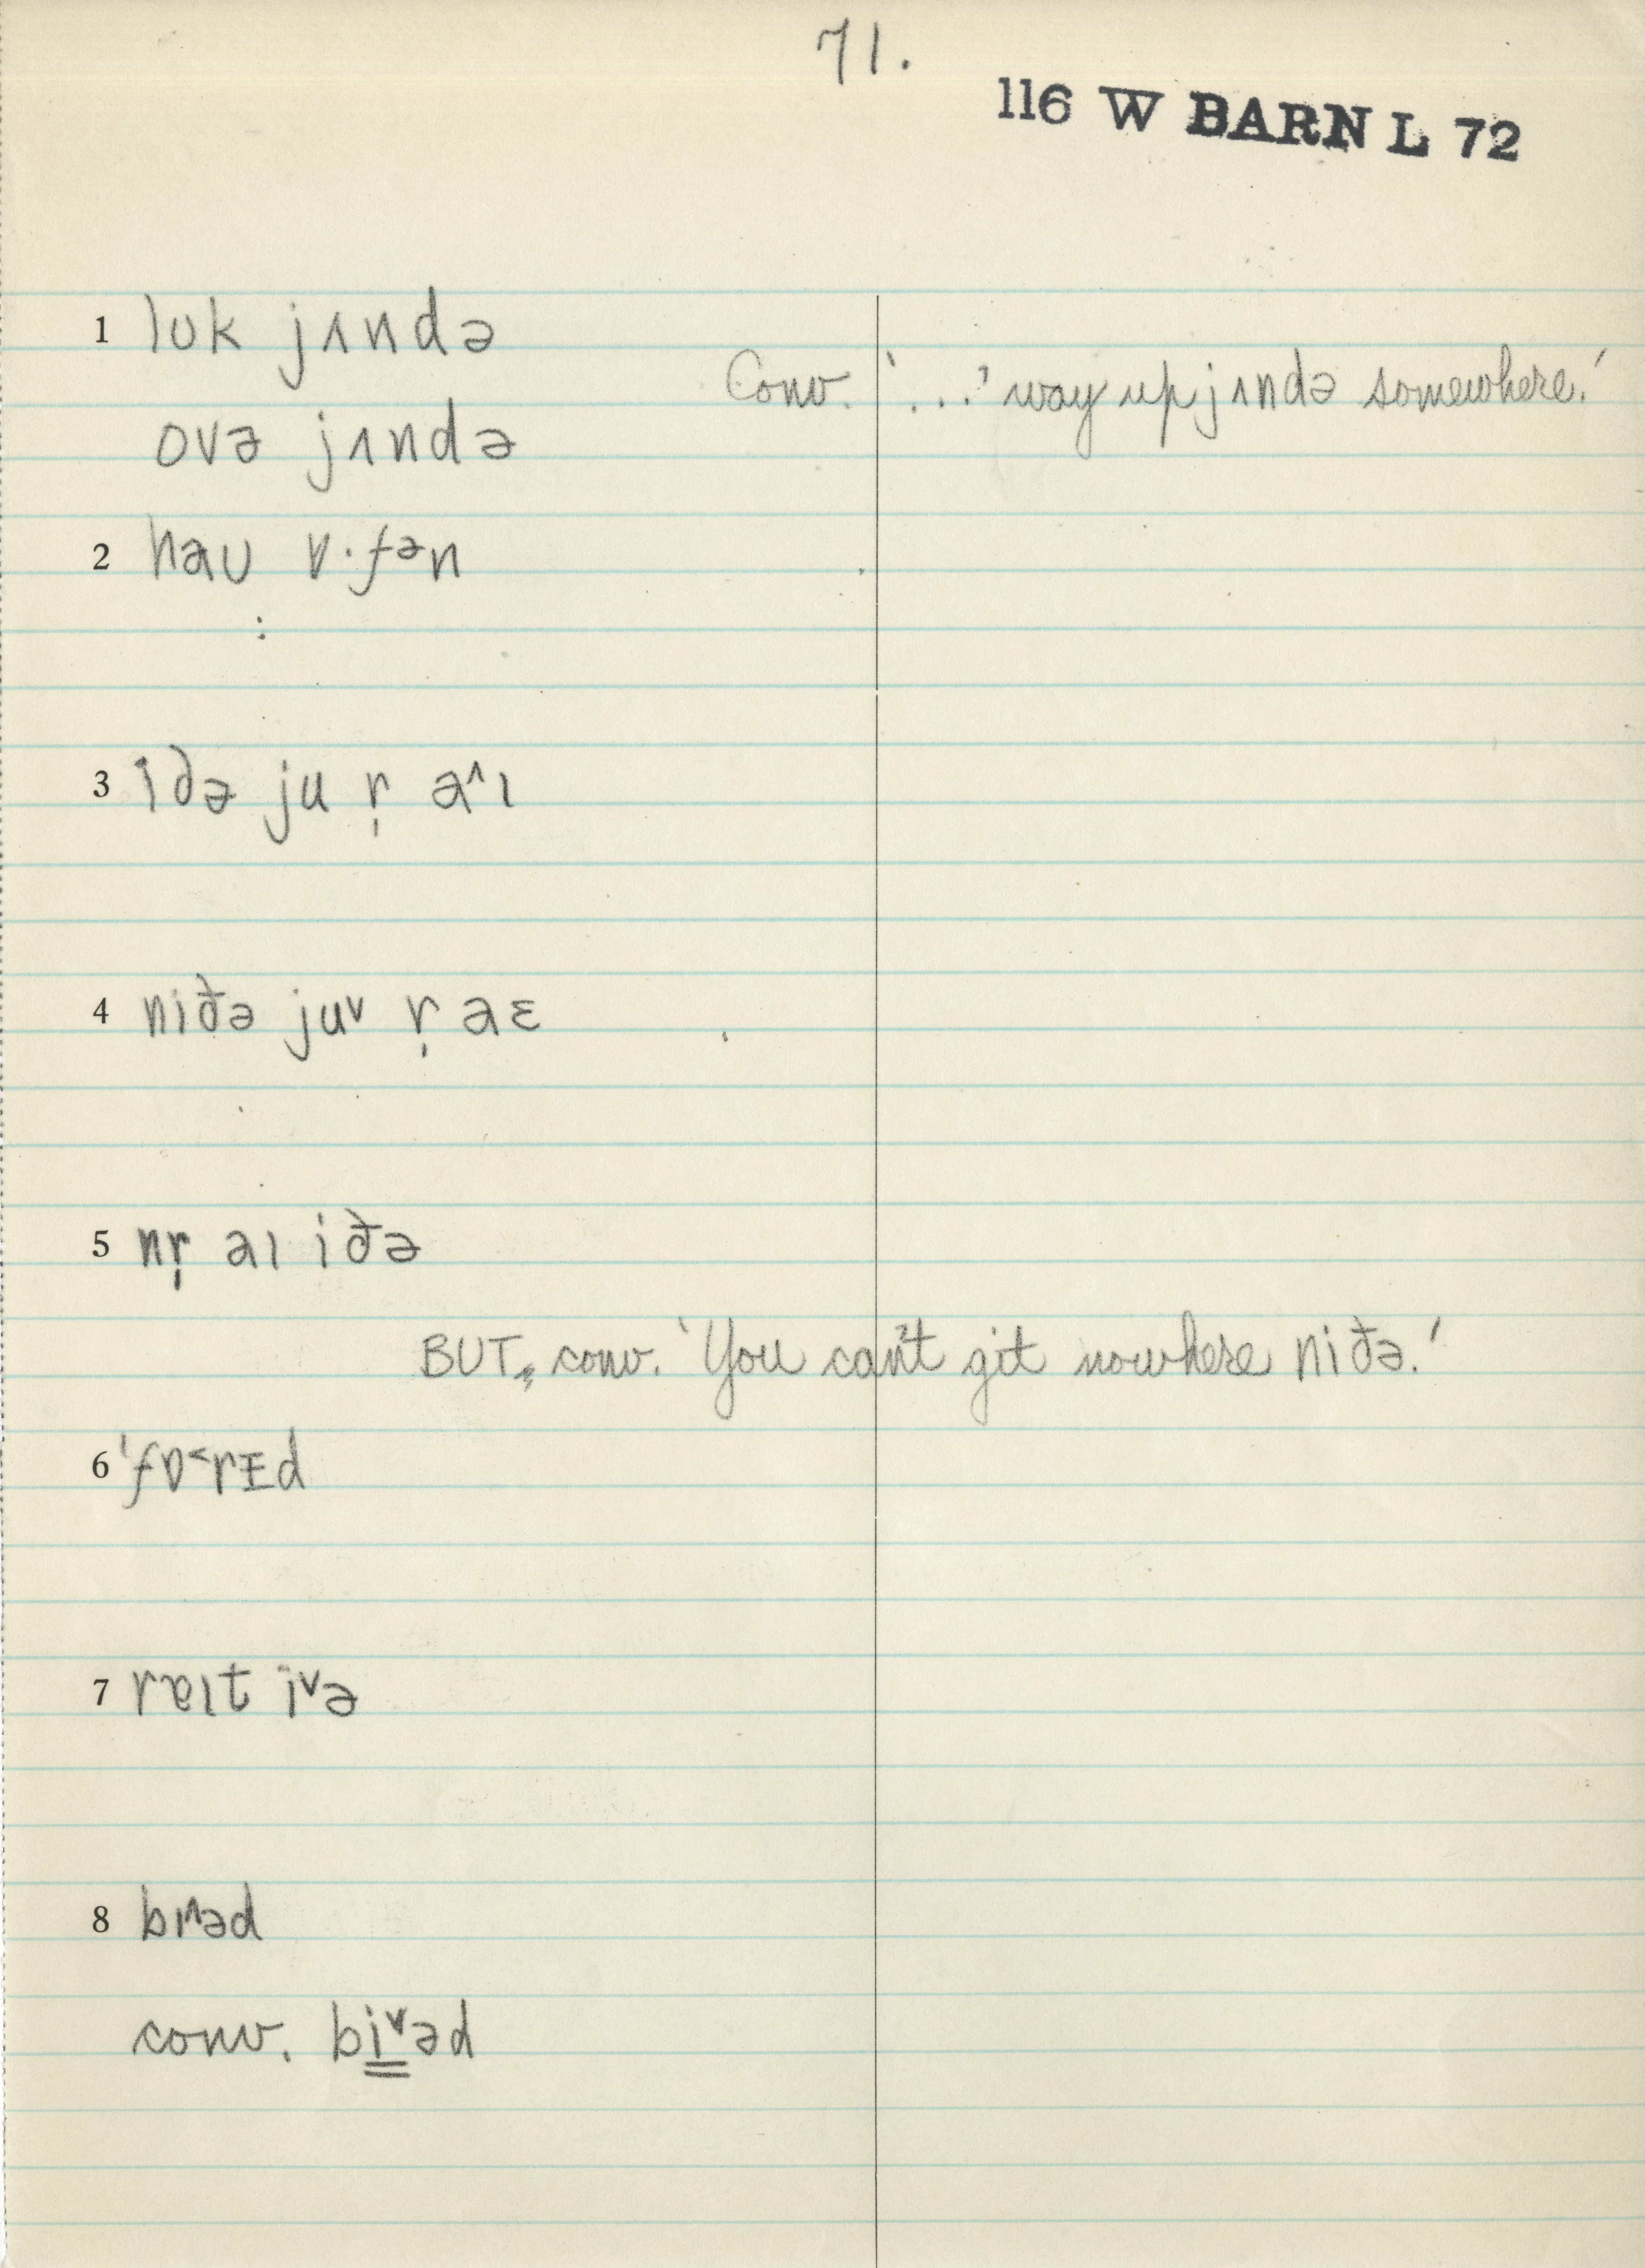 71.
116 W BARN L 72
1 lʊk jɪndə
Conv. '...' way up jɪndə somewhere.'
ovə jɪndə
2 haʊ ɒ·fən
:
3 iðə ju r̩ a^ɪ
4 niðə ju˅ r̩ aɛ
5 nr̩ aɪ iðə
BUT, conv. 'You can't git nowhere niðə.'
6 'fɒ˂rɪd
7 rɐɪt i˅ə
8 bɪ^əd
conv. bi˅əd